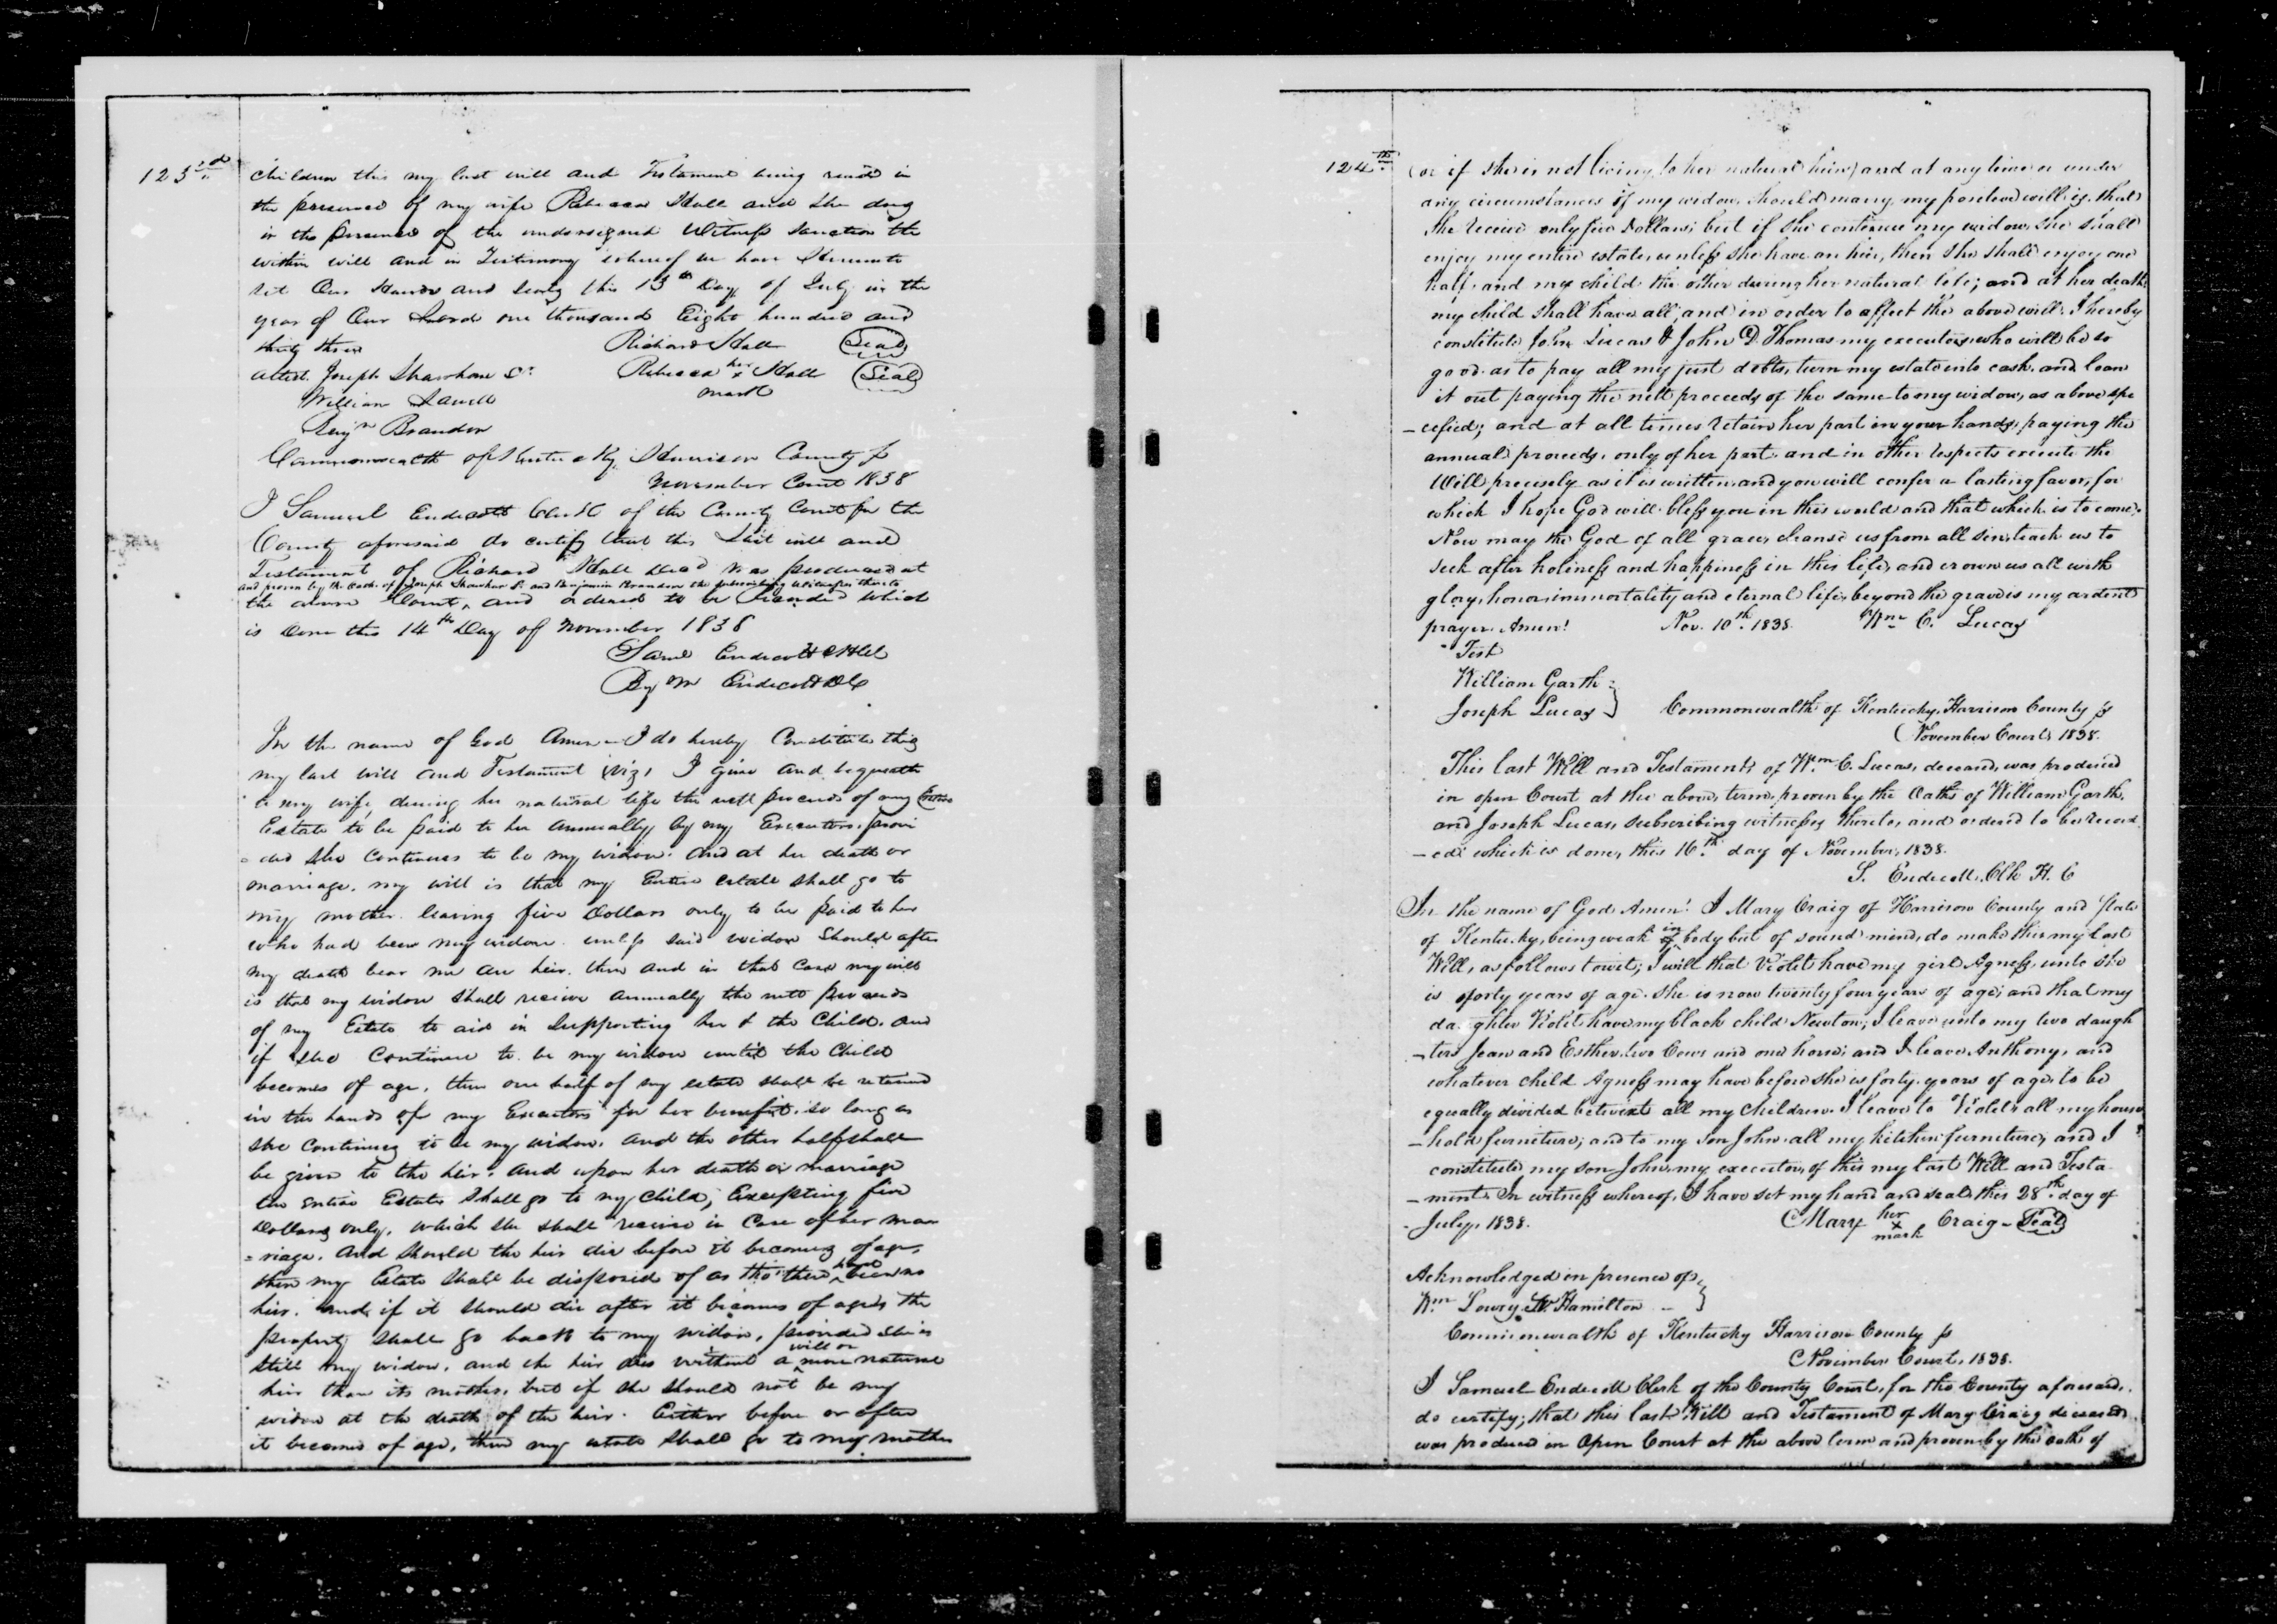 123rd
children this my last will and Testament being read in
the presence of my wife Rebecca Hall and she doug
in the presence of the undersigned Witness sanction the
within will and in Testimony whereof we have Hereunto
set Our Hands and seals this 13th Day of July in the
year of Our Lord one thousand Eight hundred and
thirty three Richard Hall (Seal)
attest. Joseph Shawhan Sr. Rebecca her x mark Hall (Seal)
William
Benjn Brandon
Commonwealth of Kentucky Harrison County ss
November Court 1838
I Samuel Endicott Clerk of the County Court for the
County aforesaid do certify that this Last will and
Testament of Richard Hall Decd was produced at
and proven by the oath of Joseph Shawhan Sr and Benjamin Brandon the subscribing witnesses thereto
the above Court, and ordered to be Recorded which
is done this 14th Day of November 1838
Saml Endicott Clk
By M Endicott DC
In the name of God Amen - I do hereby Constitute this
my last will and Testament (viz) I give and bequeath
to my wife, during her natural life the nett proceeds of my Entire
Estate to be paid to her annually, by my Executors, provi
= ded she continues to be my widow. And at her death or
marriage. my will is that my Entire estate shall go to
my mother. leaving five Dollars only to be paid to her
who had been my widow. unless said widow should after
my death bear me an heir. then and in that case my will
is that my widow shall receive annually the nett proceeds
of my Estate to aid in Supporting her & the Child. and
if she Continue to be my widow until the Child
becomes of age, then one half of my estate shall be retained
in the hands of my Executors for her benefit. so long as
she continues to be my widow. and the other half shall
be given to the heir. and upon her death or marriage
the Entire Estate shall go to my child, Excepting five
Dollars only, which she shall receive in Case of her mar
= riage. And should the heir die before it becomes of age,
then my Estate shall be disposed of as tho' there had been no
heir. and if it should die after it becomes of age, the
property shall go back to my widow, provided she is
still my widow, and the heir dies without a will or more natural
heir than its mother, but if she should not be my
widow at the death of the heir. Either before or after
it becomes of age, then my estate shall go to my mother
124th
(or if she is not living, to her natural heirs) and at any time or under
any circumstances if my widow, should marry, my positive will is, that
she receive only five Dollars; but if she continue my widow, she shall
enjoy my entire estate, unless she have an heir, then she shall enjoy one
half, and my child the other during her natural life; and at her death,
my child shall have all, and in order to affect the above will, I hereby
constitute John Lucas & John D. Thomas my executors, who will be so
good as to pay all my just debts, turn my estate into cash, and loan
it out paying the nett proceeds of the same to my widow, as above spe
- cified; and at all times retain her part in your hands, paying the
annual proceeds, only of her part, and in other respects execute the
Will precisely as it is written, and you will confer a lasting favor, for
which I hope God will bless you in this world and that which is to come.
Now may the God of all grace, cleanse us from all sin, teach us to
seek after holiness and happiness in this life, and crown us all with
glory, honor, immortality and eternal life, beyond the grave is my ardent
prayer. Amen! Nov. 10th 1838. Wm C. Lucas
Test
William Garth
Joseph Lucas } Commonwealth of Kentucky, Harrison County ss
November Court, 1838.
This last Will and Testament of Wm C. Lucas, deceased, was produced
in open Court at the above, term, proven by the Oaths of William Garth,
and Joseph Lucas, subscribing witnesses thereto, and ordered to be record
- ed: which is done, this 16th day of November, 1838.
S. Endicott, Clk H. C
In the name of God Amen! I Mary Craig of Harrison County and State
of Kentucky, being weak of in body but of sound mind, do make this my last
Will, as follows towit; I will that Violet have my girl Agness, unto she
is forty years of age. she is now twenty four years of age; and that my
daughter Violet have my black child Newton; I leave unto my two daugh
- ters Jean and Esther, two Cows and one horse; and I leave Anthony, and
whatever child Agness may have before she is forty years of age, to be
equally divided betwixt all my children. I leave to Violet all my house
- hold furniture; and to my son John all my kitchen furniture; and I
constitute my son John, my executor, of this my last Will and Testa
- ment. In witness whereof, I have set my hand and seal, this 28th day of
July, 1838. Mary her x mark Craig - Seal
Acknowledged in presence of }
Wm Lowry W Hamilton -
Commonwealth of Kentucky Harrison County ss
November Court, 1838.
I Samuel Endicott Clerk of the County Court, for the County aforesaid,
do certify; that this last Will and Testament of Mary Craig deceased,
was produced in Open Court at the above term and proven by the oaths of